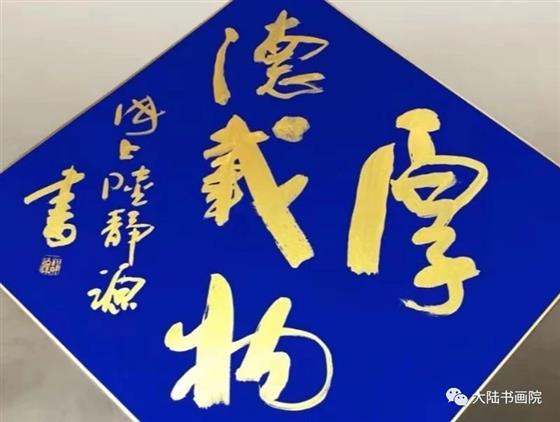 厚
德载物
海上陸静源
書
大陆书画院